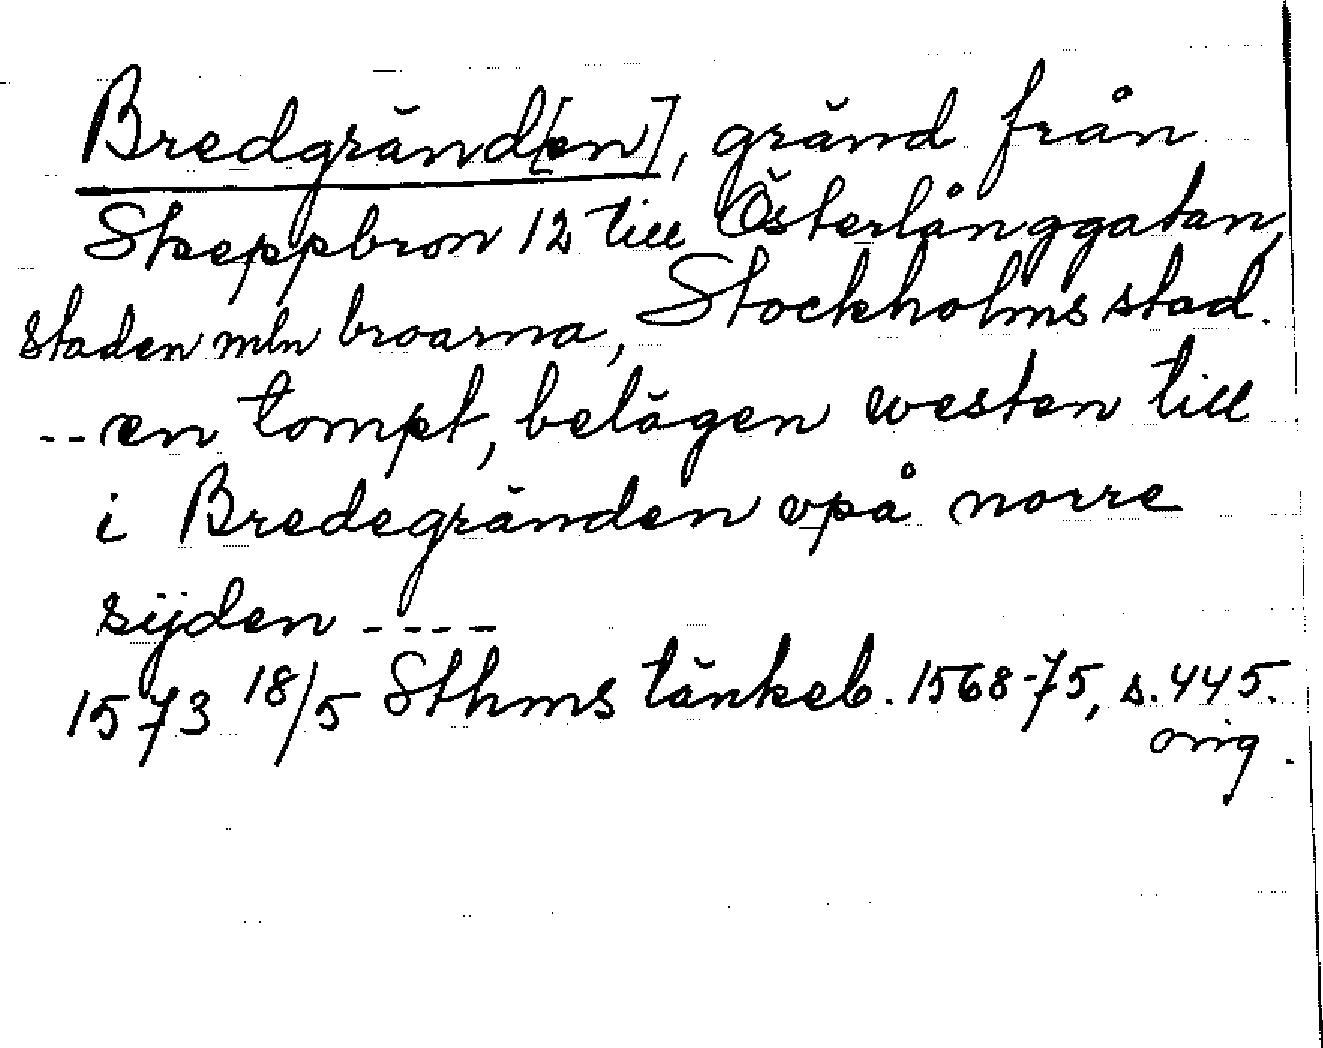 Bredgränd[en], gränd från
Skeppbron 12 till Österlånggatan,
staden mln broarna, Stockholms stad.
-- en tompt, belägen westen till
i Bredegränden vpå norre
sijden ----
1573 18/5 Sthms tänkeb. 1568-75, s. 445.
orig.